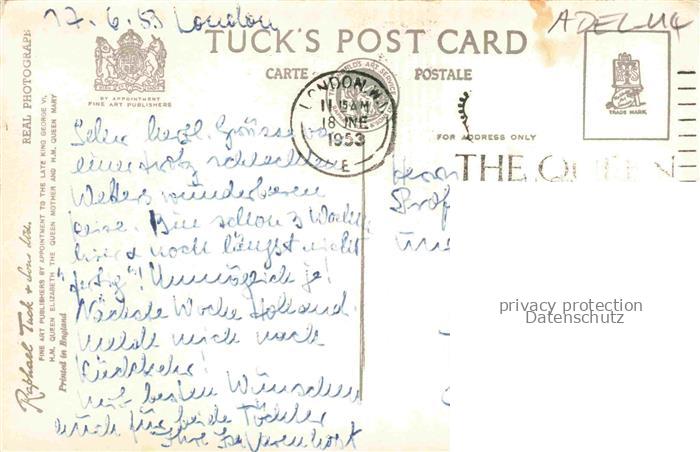 17.6.53 London
ADEL-U4
TUCK'S POST CARD
CARTE POSTALE
BY APPOINTMENT
FINE ART PUBLISHERS
THE WORLD'S ART SERVICE
TRADE MARK
LONDON. W.
11 15 AM
18 JNE
1953
E
FOR ADDRESS ONLY
THE QUEEN
REAL PHOTOGRAPH
Raphael Tuck & Sons Ltd.
FINE ART PUBLISHERS BY APPOINTMENT TO THE LATE KING GEORGE VI,
H.M. QUEEN ELIZABETH THE QUEEN MOTHER AND H.M. QUEEN MARY
Printed in England
Sehr herzl. Grüsse von
einer trotz schlechten
Wetters wunderbaren
Reise. Bin schon 3 Wochen
hier & noch längst nicht
"fertig"! Unmöglich ja!
Nächste Woche Holland.
Melde mich nach
Rückkehr!
Mit besten Wünschen
auch für beide Töchter
Ihre
Herrn
Prof
privacy protection
Datenschutz